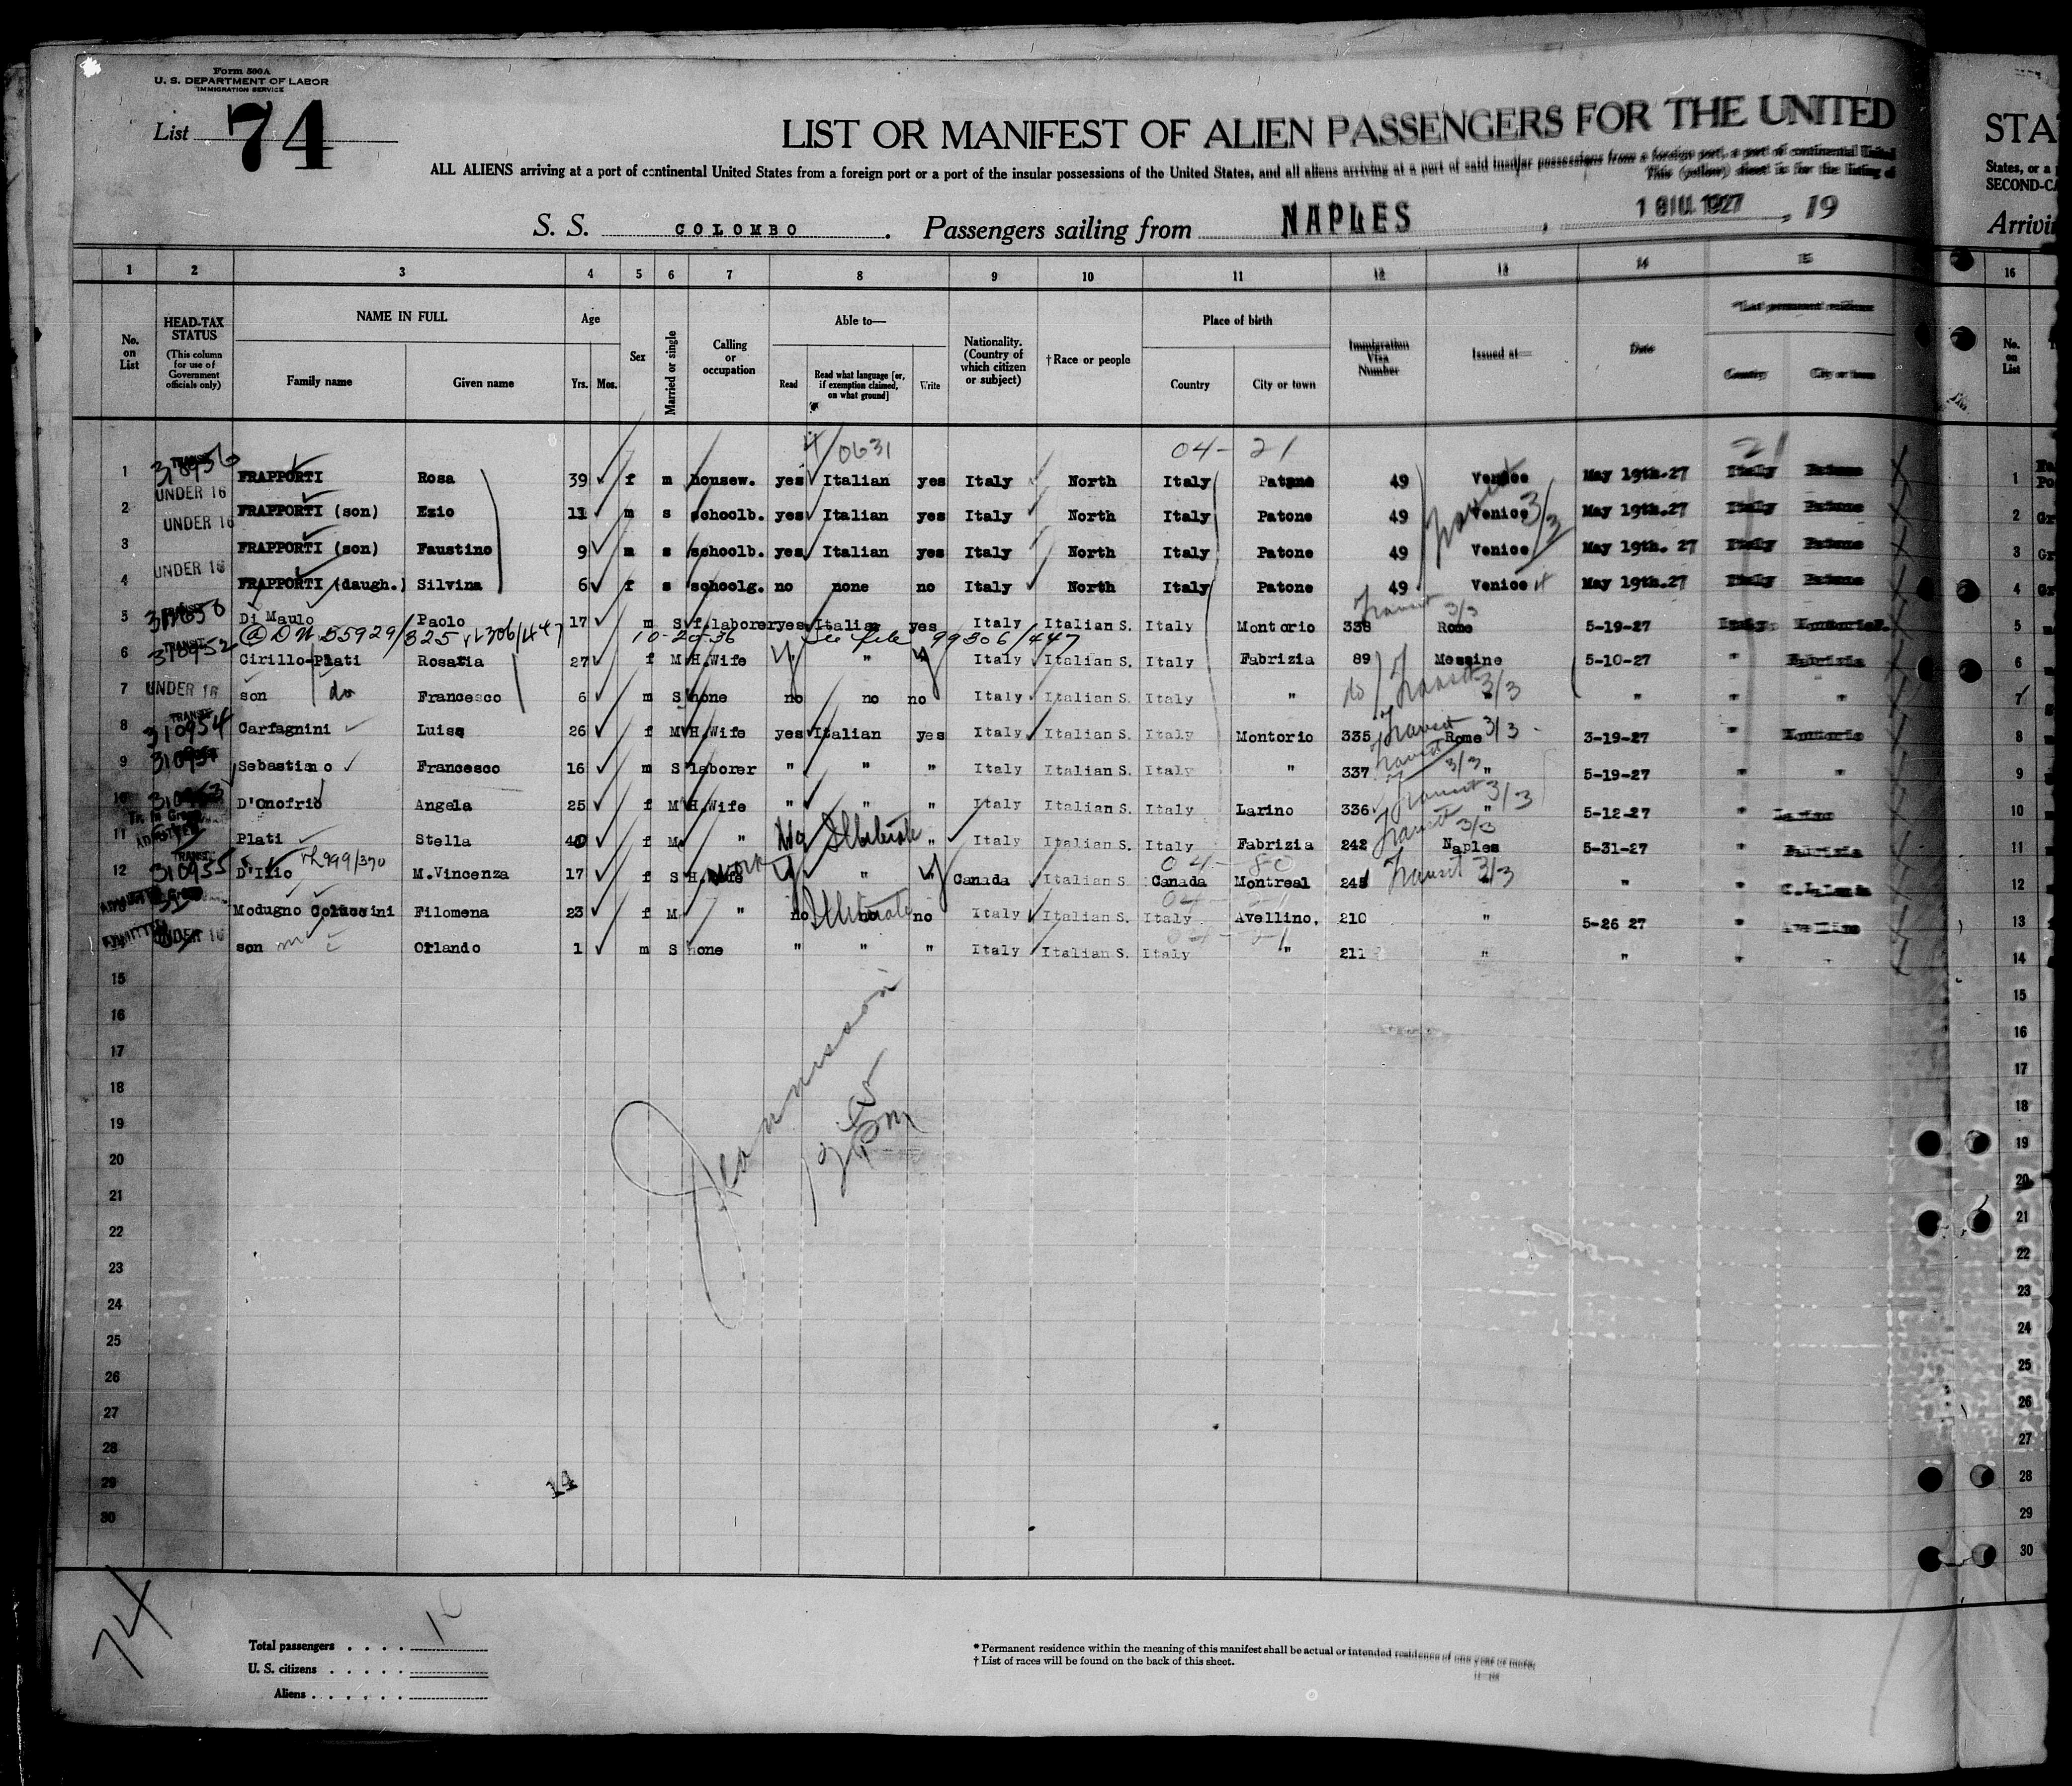 Form 500A
U. S. DEPARTMENT OF LABOR
IMMIGRATION SERVICE
List 74
LIST OR MANIFEST OF ALIEN PASSENGERS FOR THE UNITED
STA
ALL ALIENS arriving at a port of continental United States from a foreign port or a port of the insular possessions of the United States, and all aliens arriving at a port of said insular possessions from a foreign port, a port of continental United
States, or a
This (yellow) sheet is for the listing of
SECOND-CA
S. S. COLOMBO. Passengers sailing from NAPLES, 1 GIU. 1927, 19
Arrivi
1 2 3 4 5 6 7 8 9 10 11 12 13 14 15 16
No. on List
HEAD-TAX STATUS (This column for use of Government officials only)
NAME IN FULL
Family name Given name
Age
Yrs. Mos.
Sex
Married or single
Calling or occupation
Able to—
Read
Read what language [or, if exemption claimed, on what ground]
Write
Nationality. (Country of which citizen or subject)
†Race or people
Place of birth
Country City or town
Immigration Visa Number
Issued at—
Date
*Last permanent residence
Country City or town
No. on List
4/0631 04- 21 21
1 TRANSIT 318956 FRAPPORTI Rosa 39 f m housew. yes Italian yes Italy North Italy Patone 49 Venice May 19th-27 Italy Patone 1
2 UNDER 16 FRAPPORTI (son) Ezio 11 m s schoolb. yes Italian yes Italy North Italy Patone 49 Venice May 19th.27 Italy Patone 2
Transit 3/3
3 UNDER 16 FRAPPORTI (son) Faustino 9 m s schoolb. yes Italian yes Italy North Italy Patone 49 Venice May 19th. 27 Italy Patone 3
4 UNDER 16 FRAPPORTI (daugh.) Silvina 6 f s schoolg. no none no Italy North Italy Patone 49 Venice May 19th.27 Italy Patone 4
5 Di Maulo Paolo 17 m S f.laborer yes Italian yes Italy Italian S. Italy Montorio 338 Transit 3/3 Rome 5-19-27 Italy 5
55929/325 306/447 10-20-36 See file 99306/447
6 TRANSIT 318952 Cirillo-Plati Rosaria 27 f M H.Wife " " Italy Italian S. Italy Fabrizia 89 Messine 5-10-27 " Fabrizia 6
7 UNDER 16 son do Francesco 6 m S none no no no Italy Italian S. Italy " do Transit 3/3 " " " " 7
8 TRANSIT 310954 Carfagnini Luisa 26 f M H.Wife yes Italian yes Italy Italian S. Italy Montorio 335 Transit 3/3 Rome 3-19-27 " Montorio 8
9 Sebastiano Francesco 16 m S laborer " " " Italy Italian S. Italy " 337 Transit 3/3 " 5-19-27 " " 9
10 D'Onofrio Angela 25 f M H.Wife " " " Italy Italian S. Italy Larino 336 Transit 3/3 " 5-12-27 " Larino 10
11 ADMITTED Plati Stella 40 f M " No Illiterate " Italy Italian S. Italy Fabrizia 242 Transit 3/3 Naples 5-31-27 " Fabrizia 11
04- 80
12 TRANSIT 310955 D'Ilio 999/370 M.Vincenza 17 f S H.Work " " Canada Italian S. Canada Montreal 245 Transit 3/3 " " 12
ADMITTED Modugno Colucaini Filomena 23 f M " no Illiterate no Italy Italian S. Italy Avellino. 210 " 5-26 27 " Avellino 13
ADMITTED UNDER 16 son Orlando 1 m S none " " " Italy Italian S. Italy " 211 " " " " 14
15 15
16 16
17 17
18 18
19 19
20 20
21 21
22 22
23 23
24 24
25 25
26 26
27 27
28 28
29 29
30 30
14
74
Total passengers
U. S. citizens
Aliens
* Permanent residence within the meaning of this manifest shall be actual or intended residence of one year or more.
† List of races will be found on the back of this sheet.